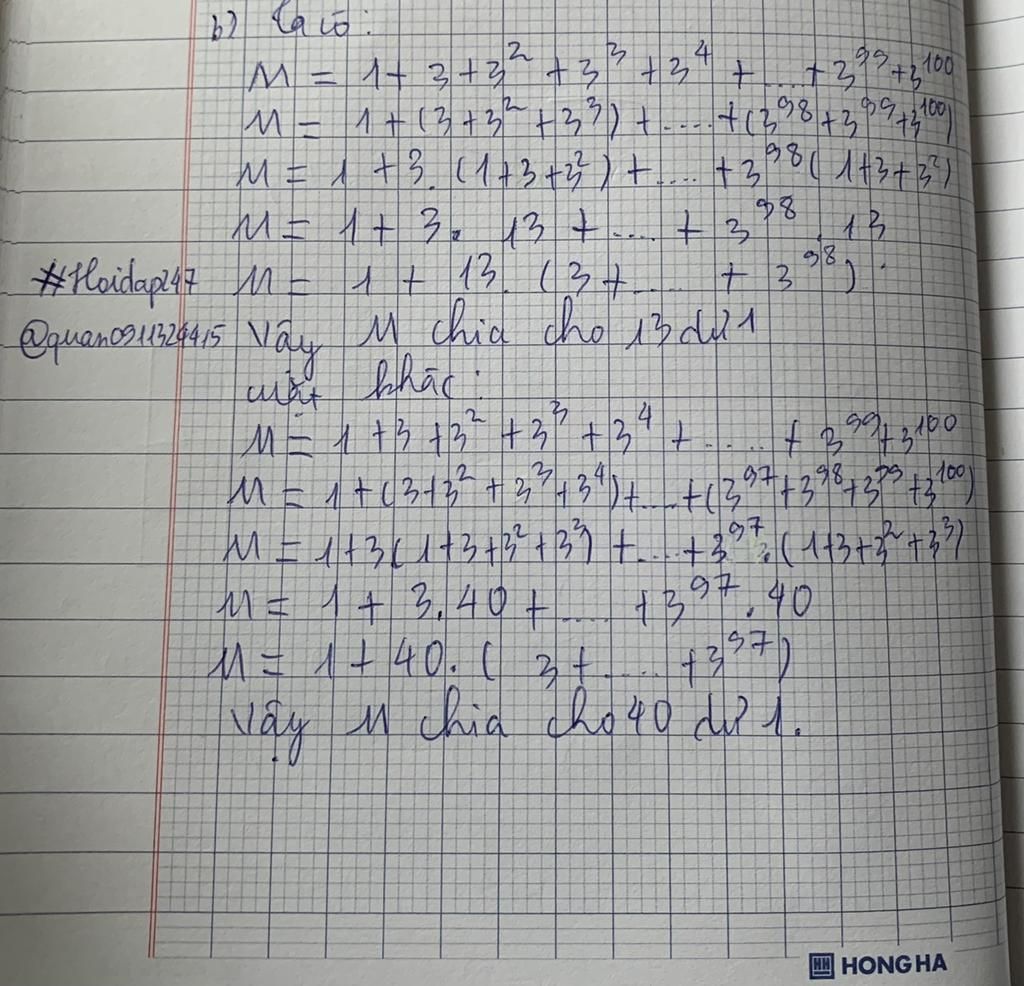 b) Ta có:
M = 1 + 3 + 3² + 3³ + 3⁴ + .... + 3⁹⁹ + 3¹⁰⁰
M = 1 + (3 + 3² + 3³) + .... + (3⁹⁸ + 3⁹⁹ + 3¹⁰⁰)
M = 1 + 3. (1 + 3 + 3²) + .... + 3⁹⁸ (1 + 3 + 3²)
M = 1 + 3. 13 + .... + 3⁹⁸ . 13
#Hoidap247 M = 1 + 13. (3 + .... + 3⁹⁸).
@quan0911324415 Vậy M chia cho 13 dư 1
mặt khác:
M = 1 + 3 + 3² + 3³ + 3⁴ + ..... + 3⁹⁹ + 3¹⁰⁰
M = 1 + (3 + 3² + 3³ + 3⁴) + .... + (3⁹⁷ + 3⁹⁸ + 3⁹⁹ + 3¹⁰⁰)
M = 1 + 3 (1 + 3 + 3² + 3³) + .... + 3⁹⁷ . (1 + 3 + 3² + 3³)
M = 1 + 3. 40 + .... + 3⁹⁷ . 40
M = 1 + 40. ( 3 + .... + 3⁹⁷)
Vậy M chia cho 40 dư 1.
HH HONG HA